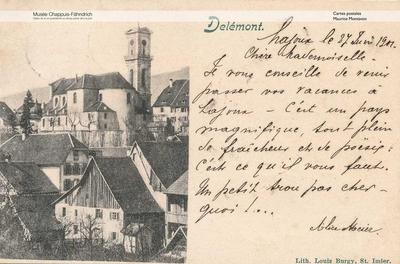 Musée Chappuis-Fähndrich
Cartes postales
Maurice Montavon
Delémont.
Lajoux le 27 Juin 1901.
Chère Mademoiselle.
Je vous conseille de venir
passer vos vacances à
Lajoux – C'est un pays
magnifique, tout plein
de fraîcheur et de poésie;
c'est ce qu'il vous faut.
Un petit trou pas cher
quoi !...
Lith. Louis Burgy, St. Imier.